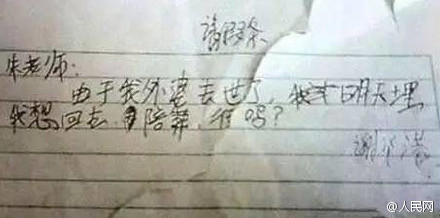 请假条
朱老师:
由于我外婆去世了,明天埋
我想回去陪葬,行吗?
谢
@人民网